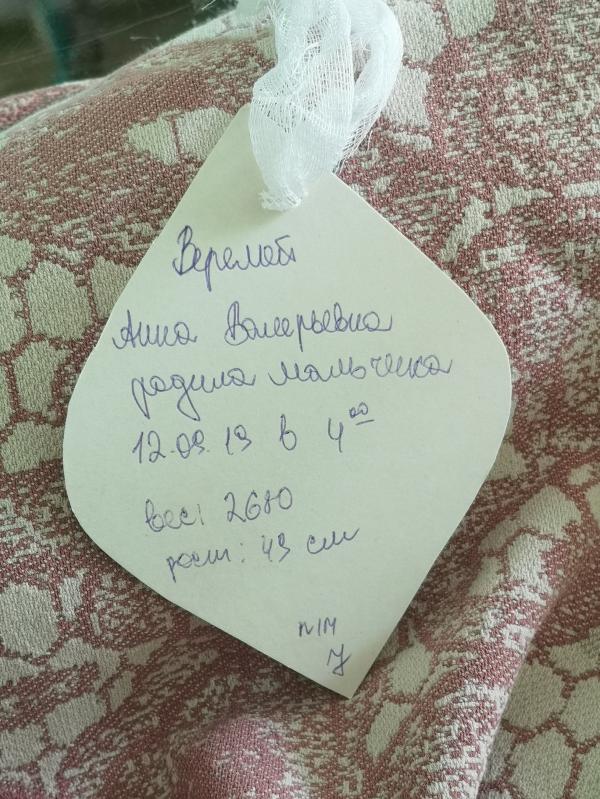 Веремей
Анна Валерьевна
родила мальчика
12.09.19 в 4⁰⁰
вес: 2680
рост: 49 см